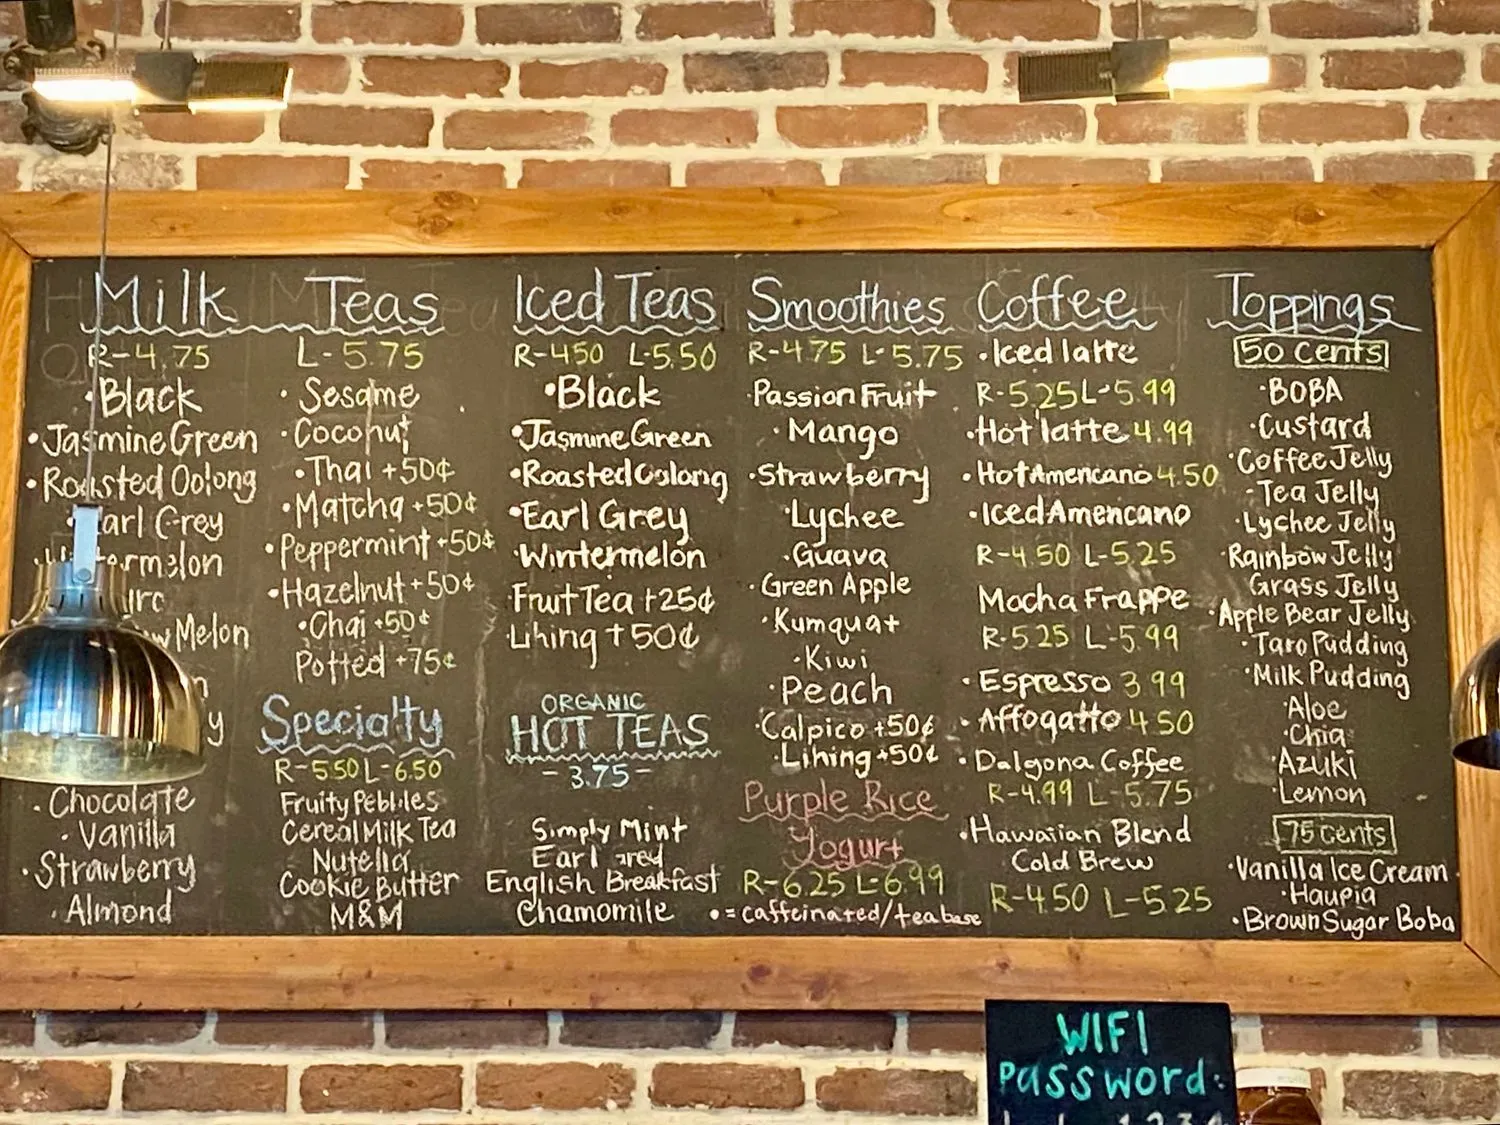 Milk Teas
R-4.75 L-5.75
•Black
•Jasmine Green
•Roasted Oolong
Earl Grey
Melon
Chocolate
• Vanilla
• Strawberry
• Almond
• Sesame
• Coconut
• Thai +50¢
• Matcha +50¢
• Peppermint +50¢
• Hazelnut +50¢
• Chai +50¢
Potted +75¢
Specialty
R-5.50 L-6.50
Fruity Pebbles
Cereal Milk Tea
Nutella
Cookie Butter
M&M
Iced Teas
R-4.50 L-5.50
•Black
•Jasmine Green
•Roasted Oolong
•Earl Grey
•Wintermelon
Fruit Tea +25¢
•Lihing +50¢
ORGANIC
HOT TEAS
- 3.75 -
Simply Mint
Earl Gred
English Breakfast
Chamomile
Smoothies
R-4.75 L-5.75
•Passion Fruit
• Mango
•Strawberry
•Lychee
•Guava
•Green Apple
•Kumquat
•Kiwi
•Peach
•Calpico +50¢
•Lihing +50¢
Purple Rice
Yogurt
R-6.25 L-6.99
• = caffeinated/tea base
Coffee
•Iced latte
R-5.25 L-5.99
•Hot latte 4.99
•Hot Americano 4.50
•Iced Americano
R-4.50 L-5.25
Mocha Frappe
R-5.25 L-5.99
• Espresso 3.99
• Affogatto 4.50
• Dalgona Coffee
R-4.99 L-5.75
•Hawaiian Blend
Cold Brew
R-4.50 L-5.25
Toppings
50 cents
•BOBA
•Custard
•Coffee Jelly
•Tea Jelly
•Lychee Jelly
•Rainbow Jelly
Grass Jelly
•Apple Bear Jelly
•Taro Pudding
•Milk Pudding
•Aloe
•Chia
•Azuki
•Lemon
75 cents
•Vanilla Ice Cream
•Haupia
•Brown Sugar Boba
WIFI
Password: